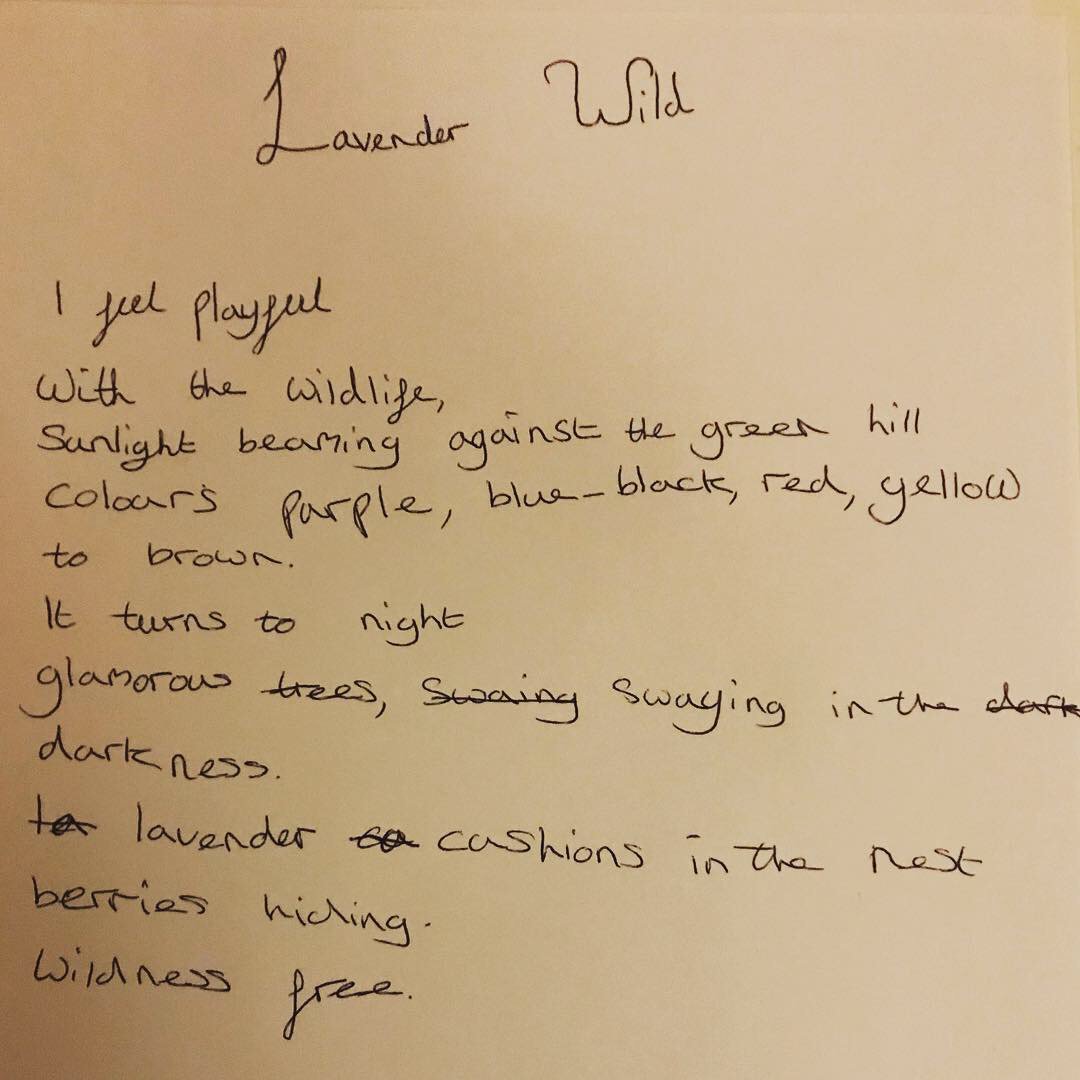 Lavender Wild
I feel playful
With the wildlife,
Sunlight beaming against the green hill
Colours purple, blue-black, red, yellow
to brown.
It turns to night
glamorous trees, Swaing swaying in the dark
darkness.
la lavender cu cushions in the nest
berries hiding.
Wildness free.